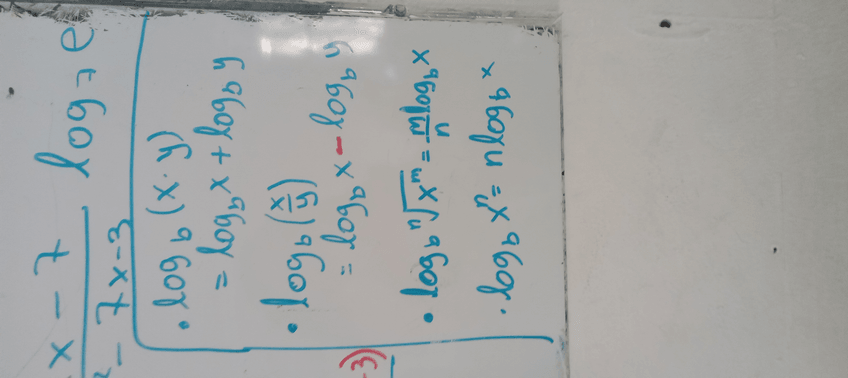 x - 7
- 7x - 3
log₇ e
• log_b (x · y)
= log_b x + log_b y
• log_b (x/y)
= log_b x - log_b y
• log_b ⁿ√xᵐ = m/n log_b x
• log_b xⁿ = n log_b x
3)